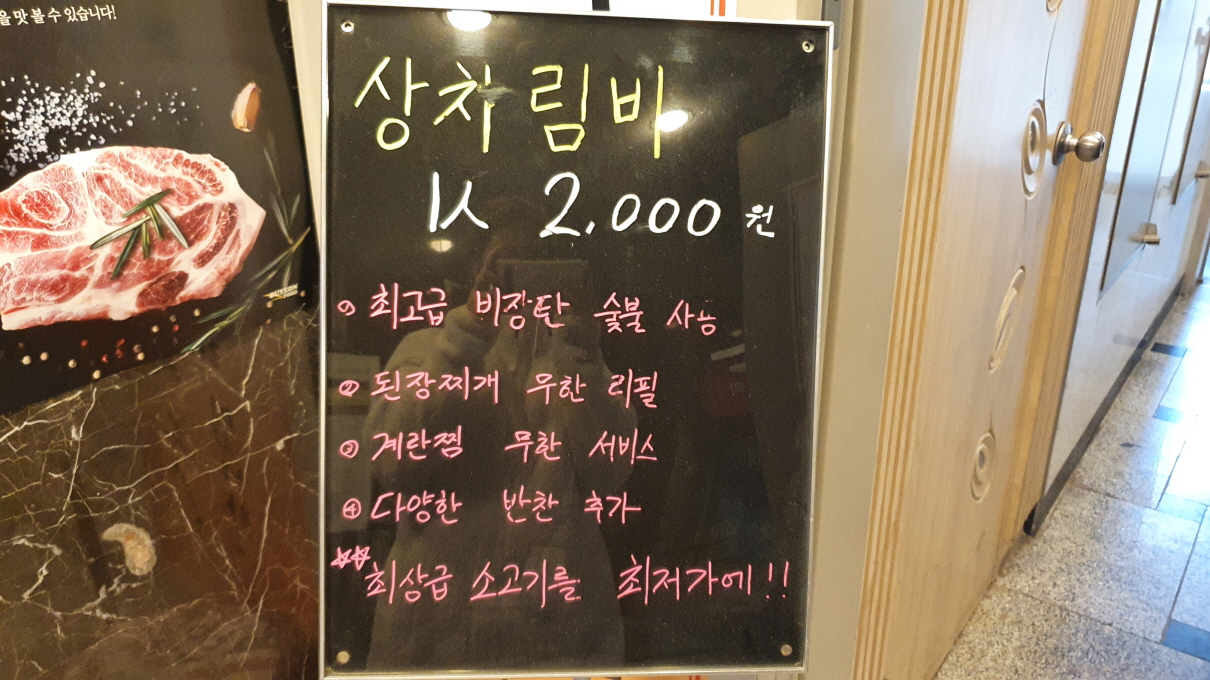 을 맛 볼 수 있습니다!
상차림비
1人 2,000원
① 최고급 비장탄 숯불 사용
② 된장찌개 무한 리필
③ 계란찜 무한 서비스
④ 다양한 반찬 추가
☆☆ 최상급 소고기를 최저가에!!